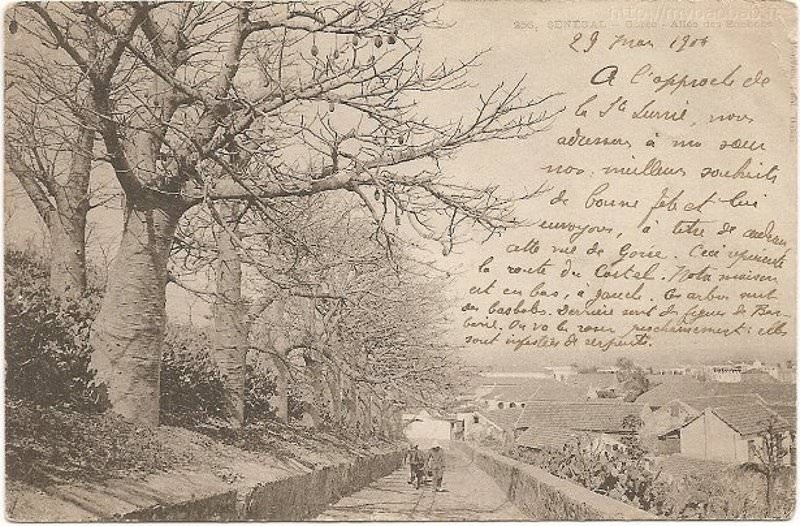 256. SÉNÉGAL - Gorée - Allée des Baobabs
29 Mai 1906
A l'approche de
la Ste , nous
adressons à ma sœur
nos meilleurs souhaits
de bonne fête et lui
envoyons, à titre de cadeau,
cette vue de Gorée. Ceci représente
la route du Castel. Notre maison
est en bas, à gauche. Ces arbres sont
des baobabs. Derrière sont des figues de Bar-
barie. On va les raser prochainement : elles
sont infestées de serpents.